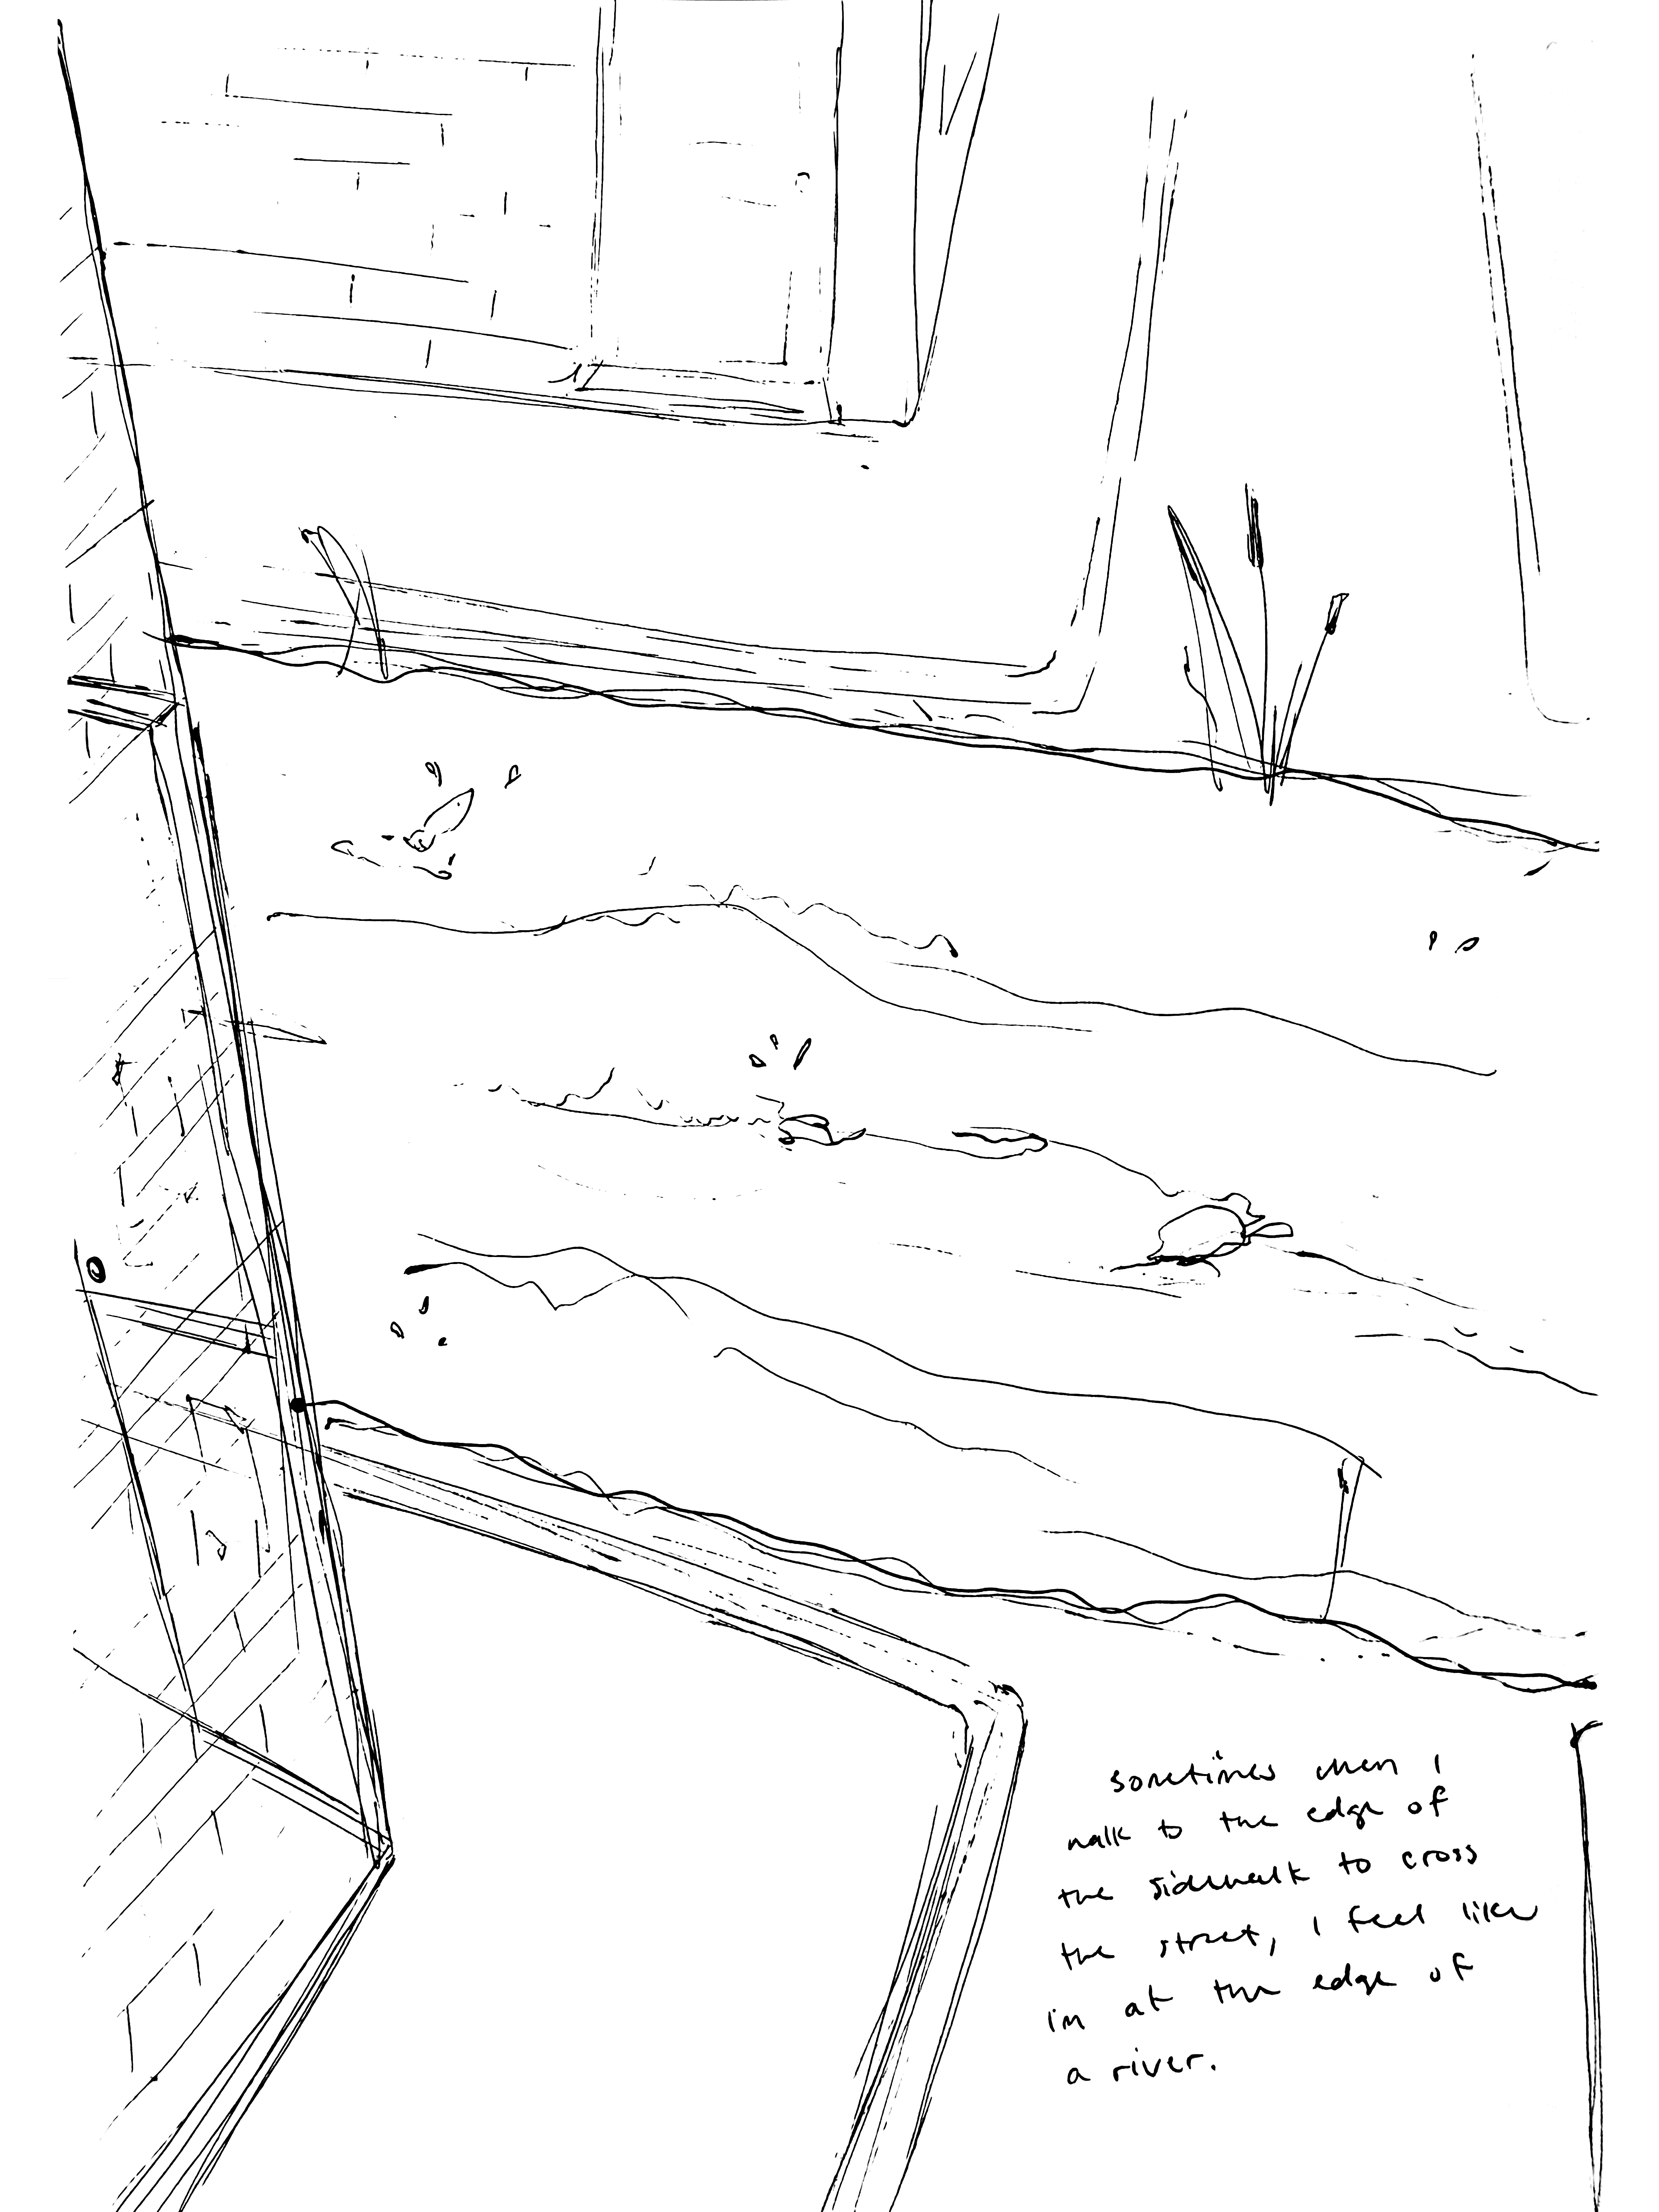 sometimes when I
walk to the edge of
the sidewalk to cross
the street, I feel like
im at the edge of
a river.